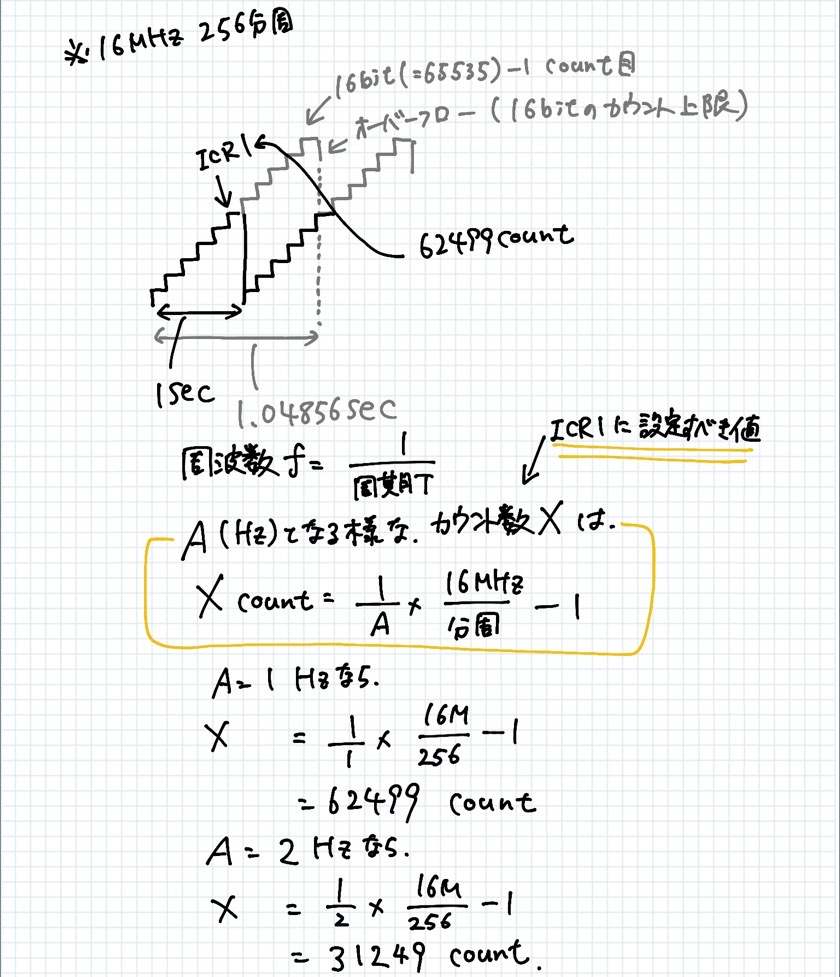 ※16MHz 256分周
16bit(=65535)-1 count目
オーバーフロー(16bitのカウント上限)
ICR1
62499count
1sec
1.04856sec
ICR1に設定すべき値
周波数f= 1/周期T
A(Hz)となる様な、カウント数Xは、
X count= 1/A × 16MHz/分周 - 1
A=1 Hzなら、
X = 1/1 × 16M/256 - 1
=62499 count
A=2 Hzなら、
X = 1/2 × 16M/256 - 1
=31249 count.